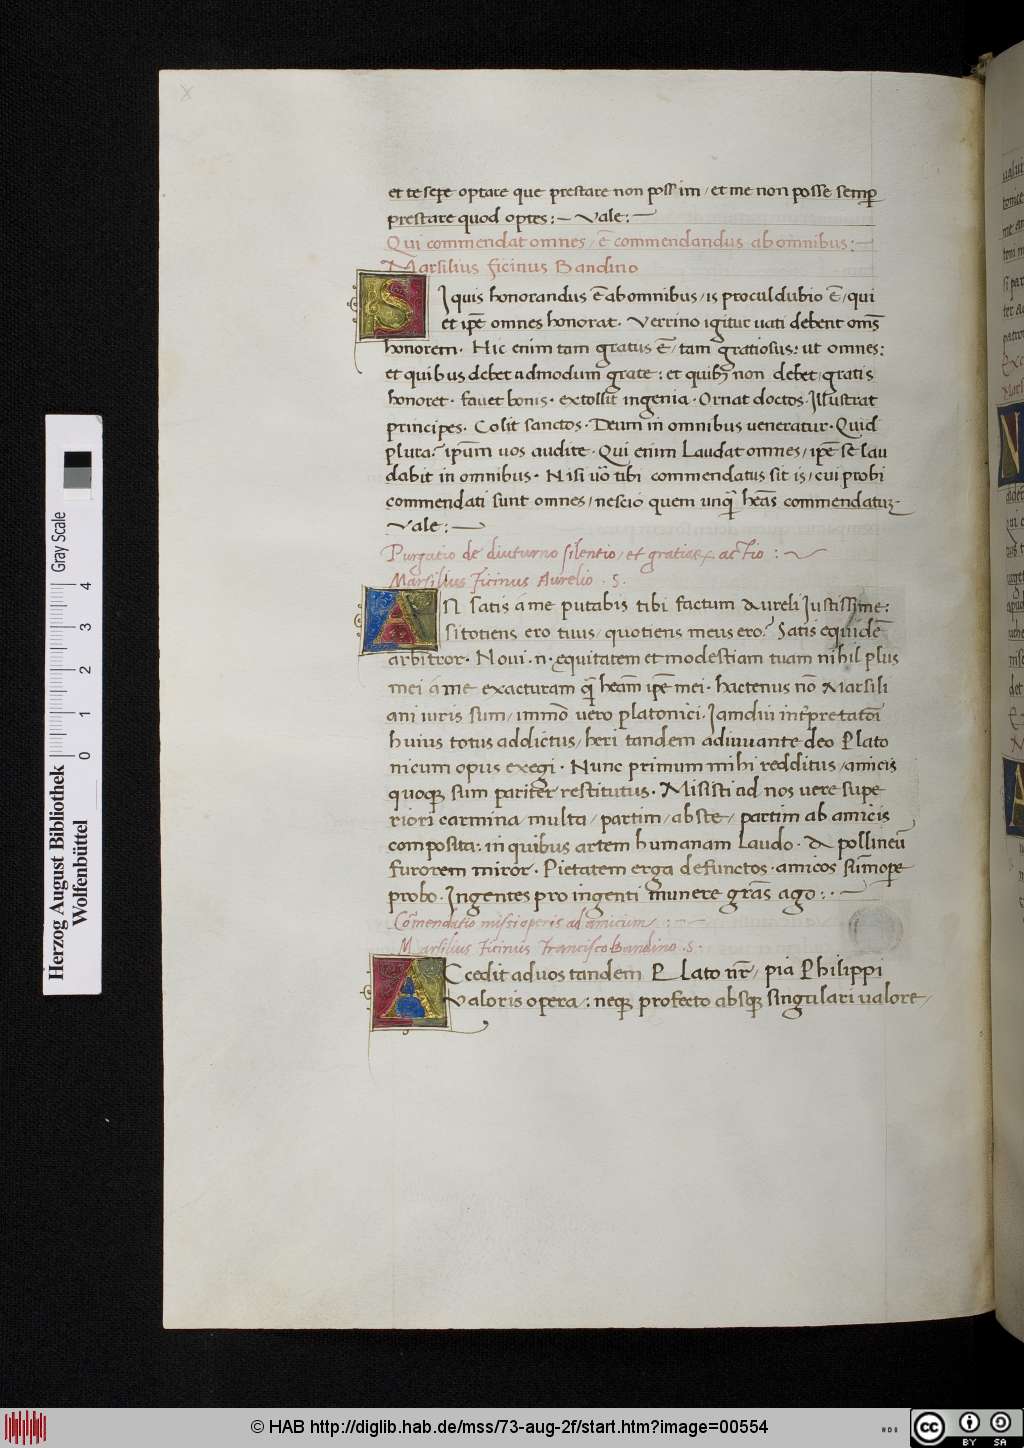 et te sepe optare que prestare non possim / et me non posse semp̱
prestare quod optes : — Vale : —
Qui commendat omnes / ē commendandus ab omnibus : —
Marsilius ficinus Bandino
SI quis honorandus ē ab omnibus / is procul dubio ē / qui
et ip̄e omnes honorat . Verrino igitur uati debent om̄s
honorem . Hic enim tam gratus ē / tam gratiosus : ut omnes :
et quibus debet admodum grate : et quibꝫ non debet / gratis
honoret . favet bonis . extollit ingenia . Ornat doctos . Illustrat
principes . Colit sanctos . Deum in omnibus veneratur . Quid
plura ? ip̄um uos audite . Qui enim Laudat omnes / ip̄e se lau
dabit in omnibus . Nisi uō tibi commendatus sit is / cui probi
commendati sunt omnes / nescio quem unq̄ hēas commendatuꝝ
Vale : —
Purgatio de diuturno silentio / et gratiaꝝ actio : ~
Marsilius Ficinus Aurelio . S .
AN satis á me putabis tibi factum Aureli Iustissime :
si totiens ero tuus / quotiens meus ero ? Satis equidē
arbitror . Noui . n . ęquitatem et modestiam tuam nihil plus
mei á me exacturam q̄ hēam ip̄e mei . hactenus nō Marsili
ani iuris sum / immō uero platonici . Iamdiu int̄pretatōi
huius totus addictus / heri tandem adiuuante deo Plato
nicum opus exegi . Nunc primum mihi redditus / amicis
quoqꝫ sum pariter restitutus . Misisti ad nos uere supe
riori carmina / multa / partim / abs te / partim ab amicis
composita : in quibus artem humanam Laudo . Apollineū
furorem miror . Pietatem erga defunctos . amicos sum̄ope
probo . Ingentes pro ingenti munere grās ago : . —
Cōmendatio missi operis ad amicum / : —
Marsilius Ficinus Francisco Bandino . S .
ACcedit ad uos tandem Plato nr̄ / pia Philippi
Valoris opera / : neqꝫ profecto absqꝫ singulari ualore /
Herzog August Bibliothek
Wolfenbüttel
Gray Scale
0 1 2 3 4
© HAB http://diglib.hab.de/mss/73-aug-2f/start.htm?image=00554
cc BY SA